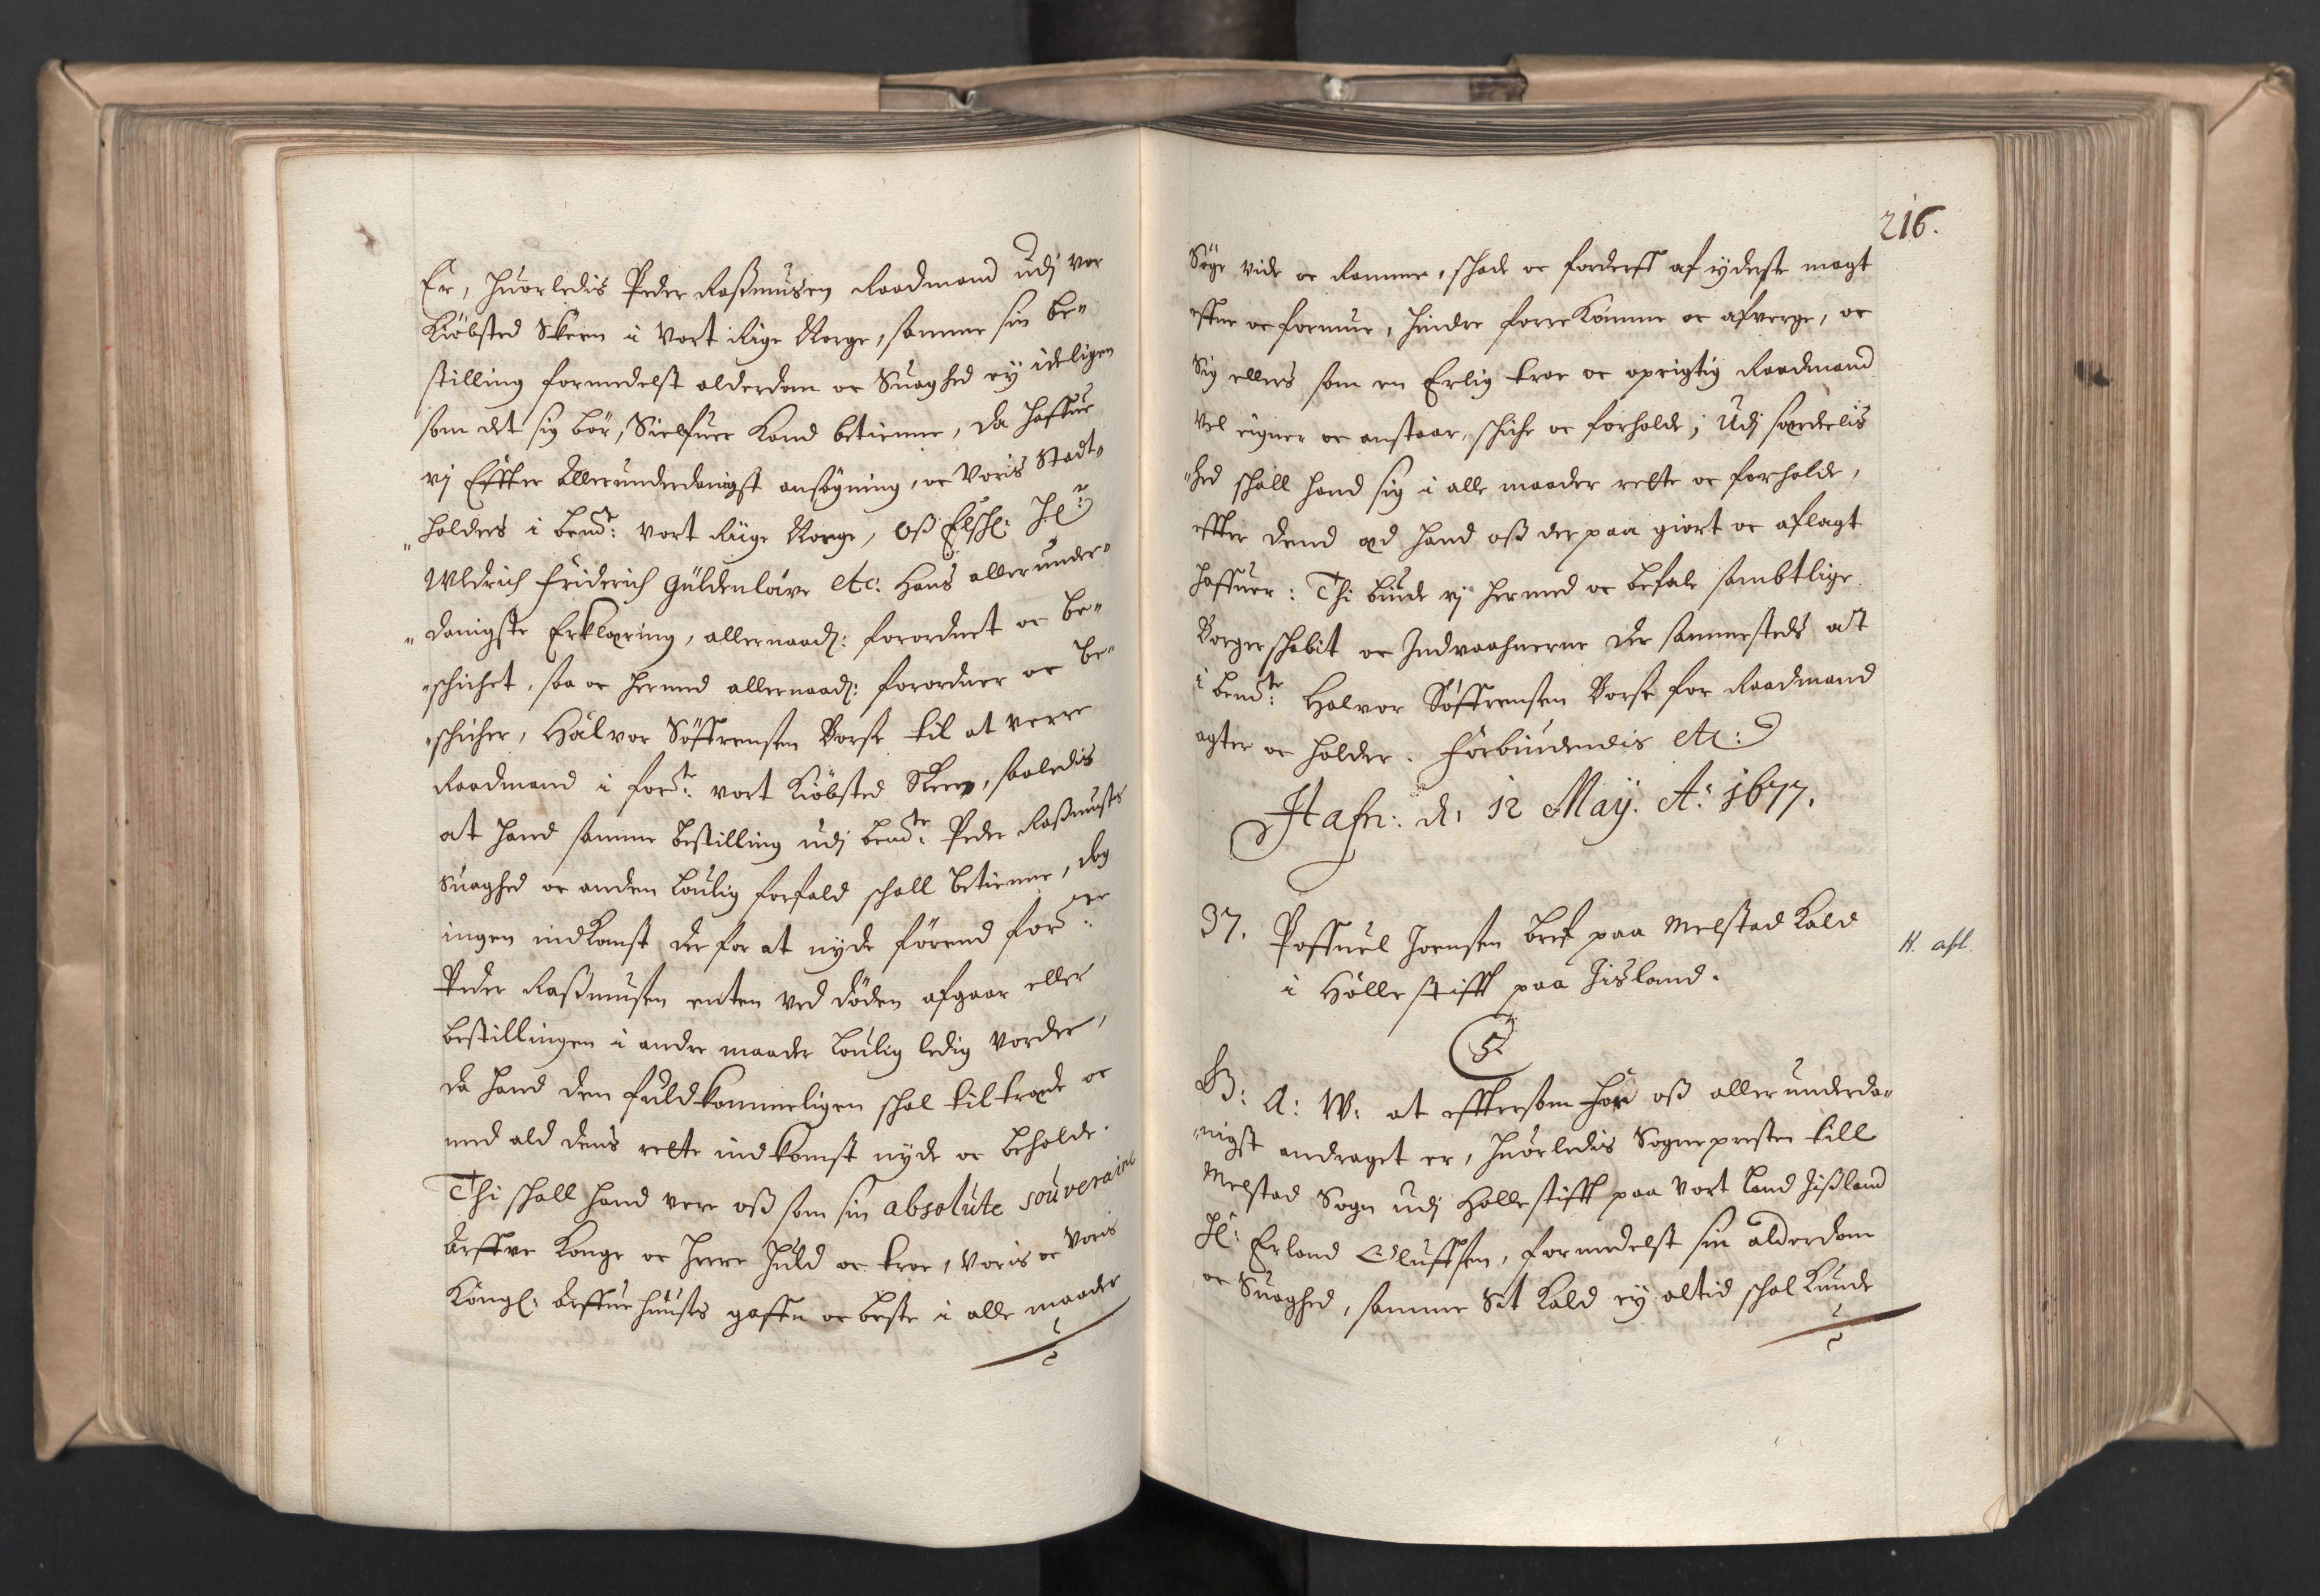 Er, huorledis Peder Raßmusen Raadmand udj vor
Kiöbsted Skeen i vort Rige Norge, samme sin be-
stilling formedelst alderdom oc Suaghed ey ideligen
som det sig bör, Sielfuer kand betienne, da haffue
vj Effter allerunderdanigst ansögning, oc Voris Stadt-
holders i bemte: vort Riige Norge, Oß Elschl: Hr:
Wldrich Friderich Güldenlöwe etc: Hans allerunder-
danigste Erklæring, allernaadl: forordnet oc be-
schichet, saa oc hermed allernaadl: forordner oc be-
schicher, Halvor Söffrensen Borse til at verre
Raadmand i forte: vort Kiöbsted Skeen, saaledis
at hand samme bestilling udj bemte: Peder Raßmusens
Suaghed oc anden loulig forfald schall betienne, dog
ingen indkomst der for at nyde förend forne:
Peder Raßmusen enten ved döden afgaar eller
bestillingen i andre maader loulig ledig vorder,
da hand dem fuldkommeligen schal tiltræde oc
med ald dens rette indkomst nyde oc beholde.
Thi schall hand vere oß som sin absolute souveraine
Arffve Konge oc Herre huld oc troe, voris oc voris
Kongl: Arffue huuses gaffn oc beste i alle maader
216.
Söge vide oc Ramme, schade oc forderff af yderste magt
effne oc formue, hindre forrekomme oc afverge, oc
Sig ellers som en Erlig troe oc oprigtig Raadmand
vel eigner oc anstaar, schiche oc forholde; Udj særdelis
-hed schall hand sig i alle maader rette oc forholde,
effter dend æd hand oß der paa giort oc aflagt
haffuer: Thi biude vj hermed oc befale sambtlige
Borgerschabit oc Indvaahnerne der sammesteds at I
bemte: Halvor Söffrensen Borse for Raadmand
agter oc holder. Forbiudendis etc:
Hafn: d: 12 Maÿ. Ao: 1677.
37. Poffuel Joensen bref paa Melstad kald
i Hölle stifft paa Jisland.
K. afsl.
C5
G: A: W: at efftersom for oß allerunderda-
nigst andraget er, huorledis Sognepresten till
Melstad Sogn udj Hollestifft paa vort land Jißland
Hr: Erland Oluffsen, formedelst sin alderdom
oc Suaghed, samme Sit kald ey altid schal kunde